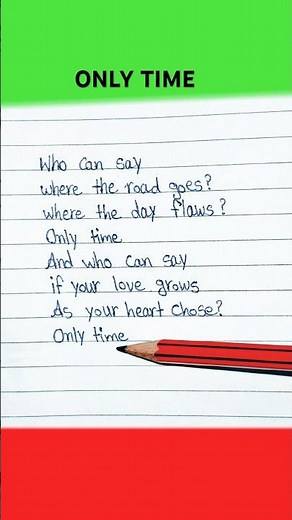 ONLY TIME
Who can say
where the road goes?
where the day flaws?
Only time
And who can say
if your love grows
As your heart chose?
Only time